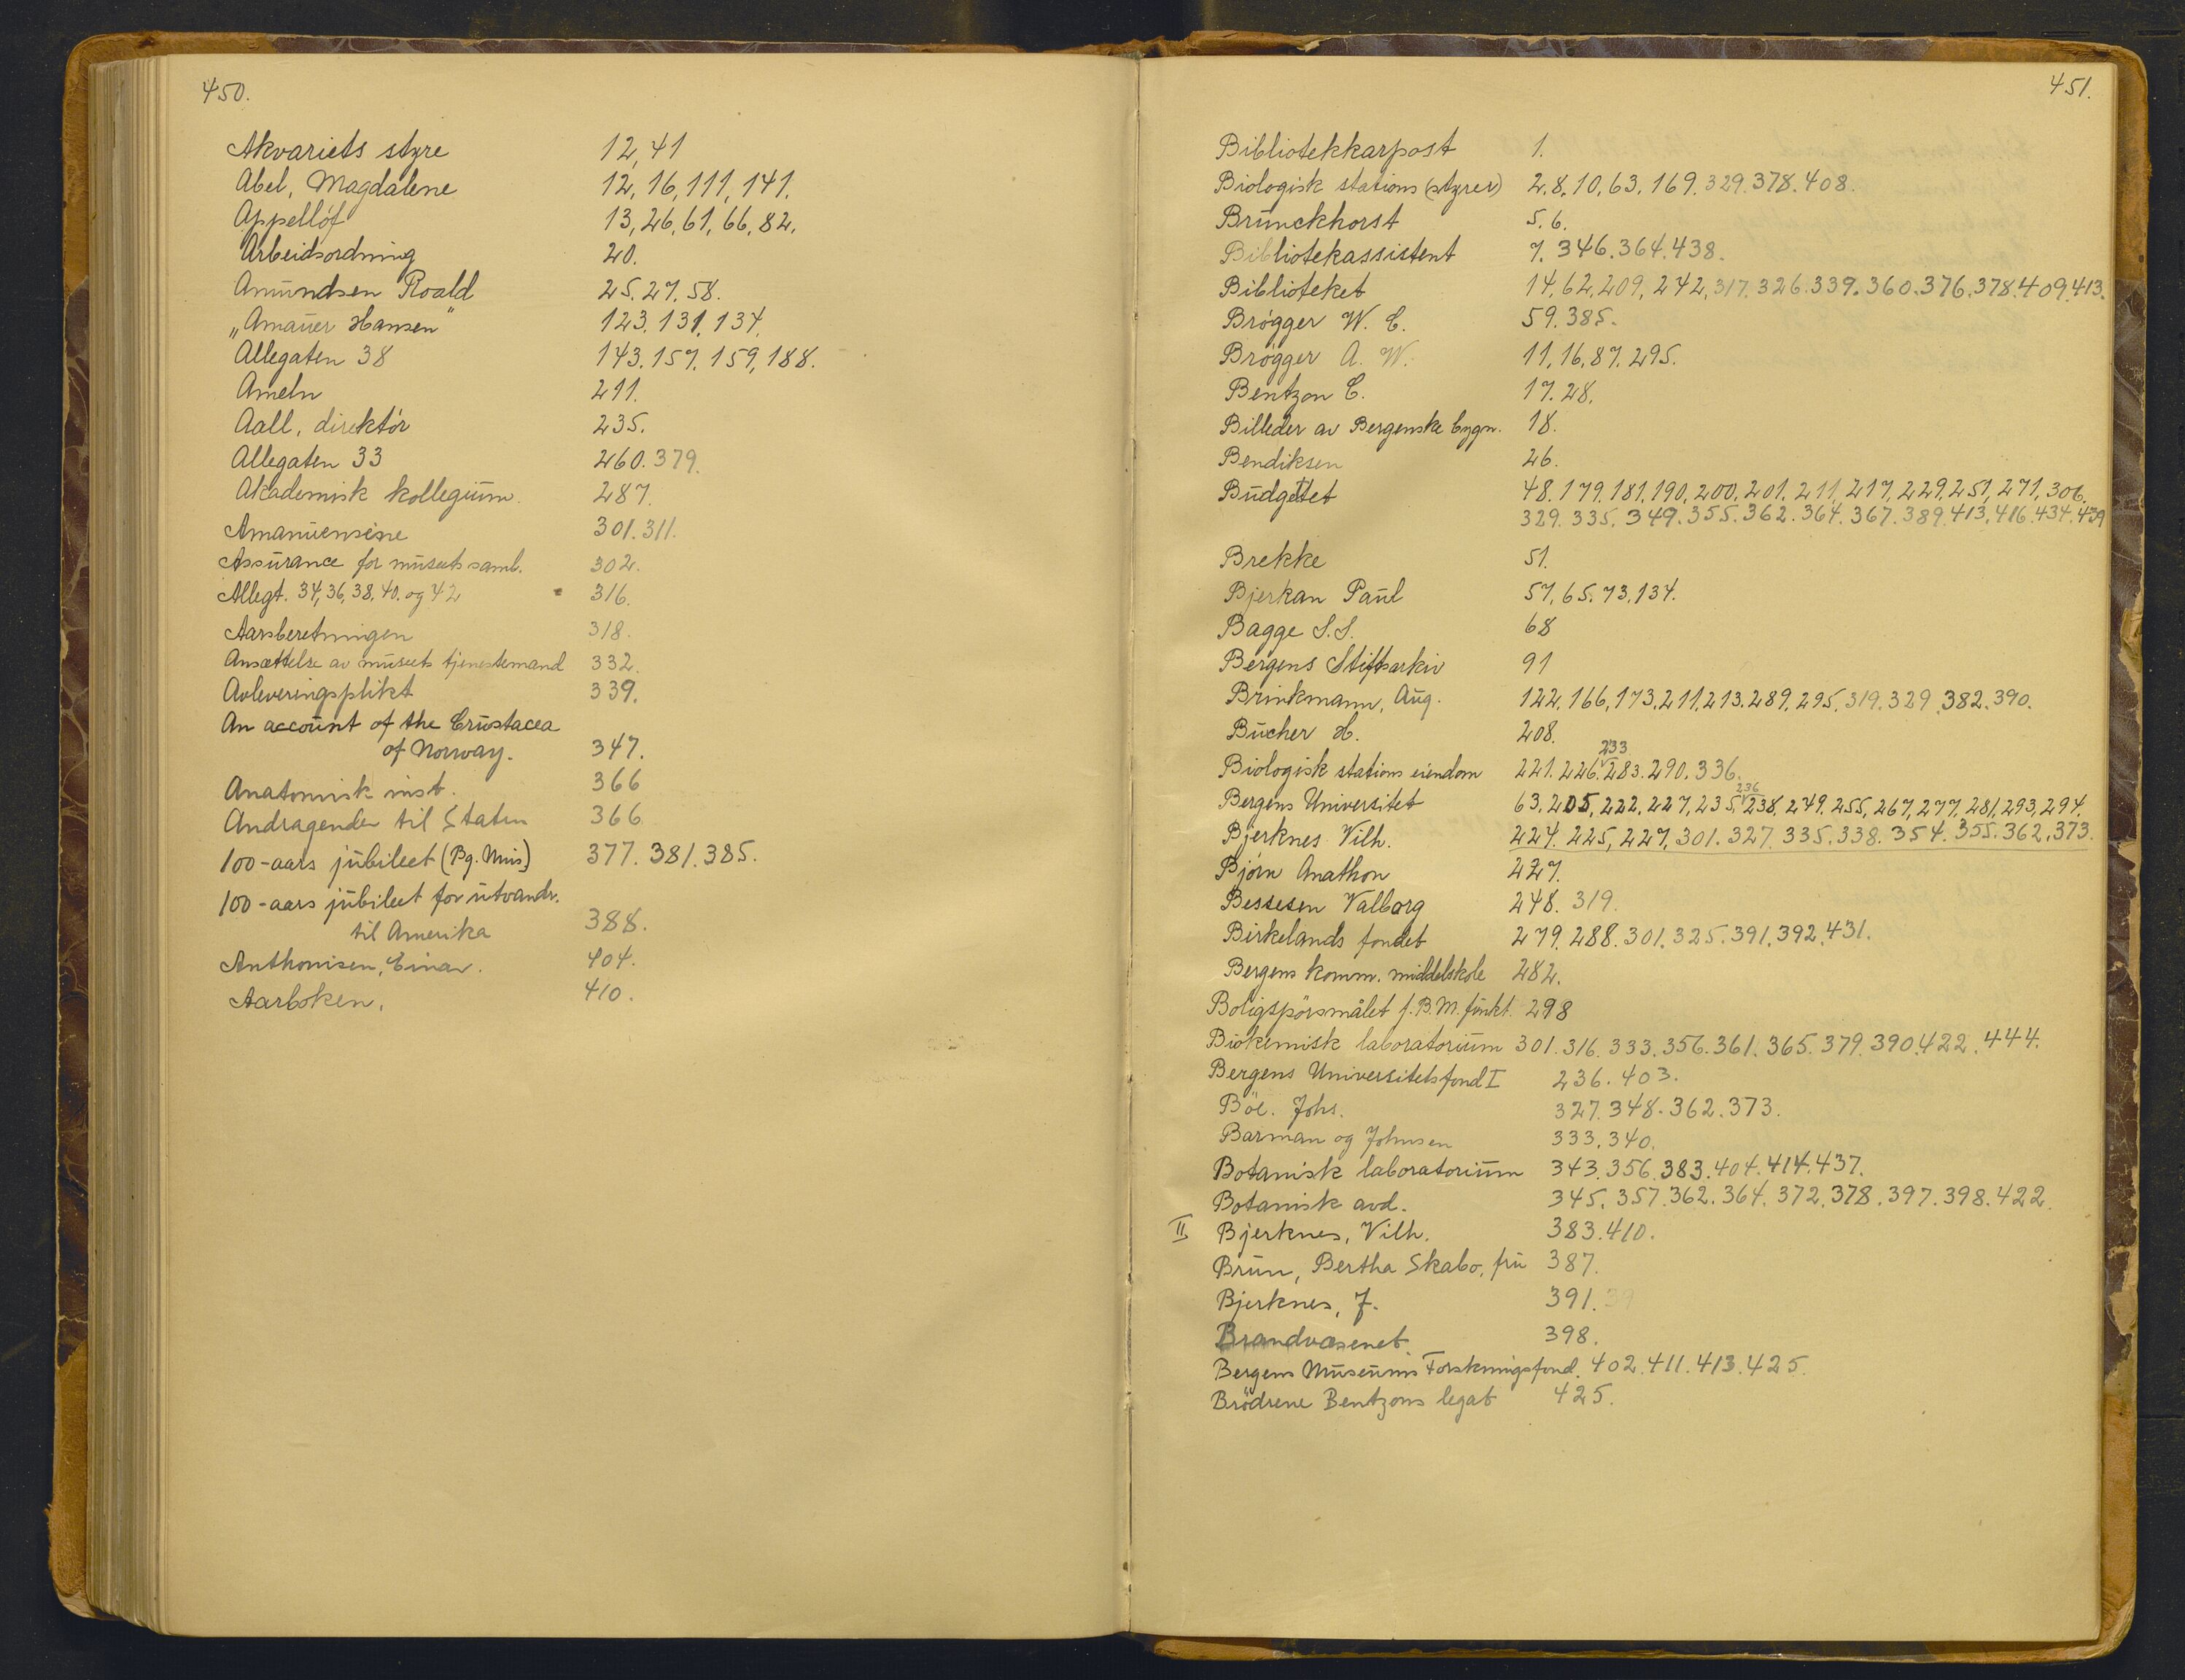 450.
Akvariets styre 12, 41
Abel, Magdalene 12, 16, 111, 141.
Appellöf 13, 26, 61, 66, 82.
Arbeidsordning 20.
Amundsen Roald 25. 27. 58.
„Amauer Hansen" 123. 131. 134.
Allegaten 38 143. 157. 159, 188.
Ameln 211.
Aall, direktör 235.
Allegaten 33 260. 379.
Akademisk kollegium. 287.
Amanuensisne 301. 311.
Assurance for museets saml. 302.
Allegt. 34, 36, 38, 40. og 42 316.
Aarsberetningen 318.
Ansættelse av museets tjenestemænd 332.
Avleveringsplikt 339.
An account of the Crustacea
of Norway. 347.
Anatomisk inst. 366
Andragender til Staten 366.
100-aars jubileet (Bg. Mus) 377. 381. 385.
100-aars jubileet for utvandr.
til Amerika 388.
Anthonisen, Einar. 404.
Aarboken. 410.
451.
Bibliotekkarpost 1.
Biologisk stations (styrer) 2, 8, 10, 63, 169. 329. 378. 408.
Brunckhorst 5. 6.
Bibliotekassistent 7. 346. 364. 438.
Biblioteket 14, 62, 209, 242, 317. 326. 339. 360. 376. 378. 409. 413.
Brögger W. C. 59. 385.
Brögger A. W. 11, 16, 87, 295.
Bentzon C. 17. 28.
Billeder av Bergenske bygn. 18.
Bendiksen 26.
Budgettet 48. 179. 181. 190, 200, 201. 211, 217, 229, 251, 271, 306.
329. 335. 349. 355. 362. 364. 367. 389. 413. 416. 434. 439
Brekke 51.
Bjerkan Paul 57, 65. 73. 134.
Bagge S. S. 68
Bergens Stiftsarkiv 91
Brinkmann, Aug. 122, 166, 173, 211, 213. 289, 295, 319. 329. 382. 390.
Bucher H. 208.
233
Biologisk stations eiendom 221. 226. 283. 290. 336.
236
Bergens Universitet 63, 205, 222, 227, 235, 238, 249. 255, 267, 277, 281, 293, 294.
Bjerknes Vilh. 224. 225, 227, 301. 327. 335. 338. 354. 355. 362. 373.
Bjørn Anathon 227.
Bessesen Valborg 248. 319.
Birkelands fondet 279. 288. 301. 325. 391. 392. 431.
Bergens komm. middelskole 282.
Boligspörsmålet f. B. M. funkt. 298
Biokemisk laboratorium 301. 316. 333. 356. 361. 365. 379. 390. 422. 444.
Bergens Universitetsfond I 236. 403.
Böe. Johs. 327. 348. 362. 373.
Barman og Johnsen 333. 340.
Botanisk laboratorium 343. 356. 383. 404. 414. 437.
Botanisk avd. 345. 357. 362. 364. 372. 378. 397. 398. 422.
II Bjerknes, Vilh. 383. 410.
Brun, Bertha Skabo, fru 387.
Bjerknes, J. 391. 39
Brandvæsenet 398.
Bergens Museums Forskningsfond. 402. 411. 413. 425.
Brödrene Bentzons legat 425.